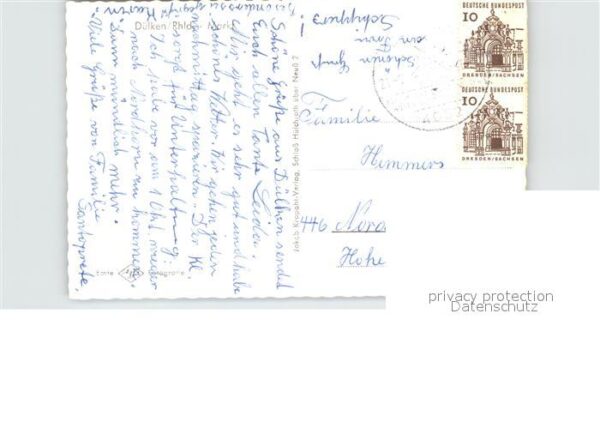 Dülken/Rhld. Markt
Schöne Grüße aus Dülken sendet
Euch allen Tante
Mir geht es sehr gut und habe
schönes Wetter. Wir gehen jeden
Nachmittag spazieren. Der Kl.
sorgt für Unterhaltung!
Ich habe vor am 1. Okt. wieder
nach Nordhorn zu kommen.
Dann mündlich mehr.
Viele Grüße von Familie
Echte Fotografie
Jakob Krapohl-Verlag, Schloß Hülchrath über Neuß 2
Schönen Gruß
an Frau
Schippers!
DEUTSCHE BUNDESPOST
10
DRESDEN/SACHSEN
DEUTSCHE BUNDESPOST
10
DRESDEN/SACHSEN
Familie
Hemmers
446 Nord
Hohe
privacy protection
Datenschutz